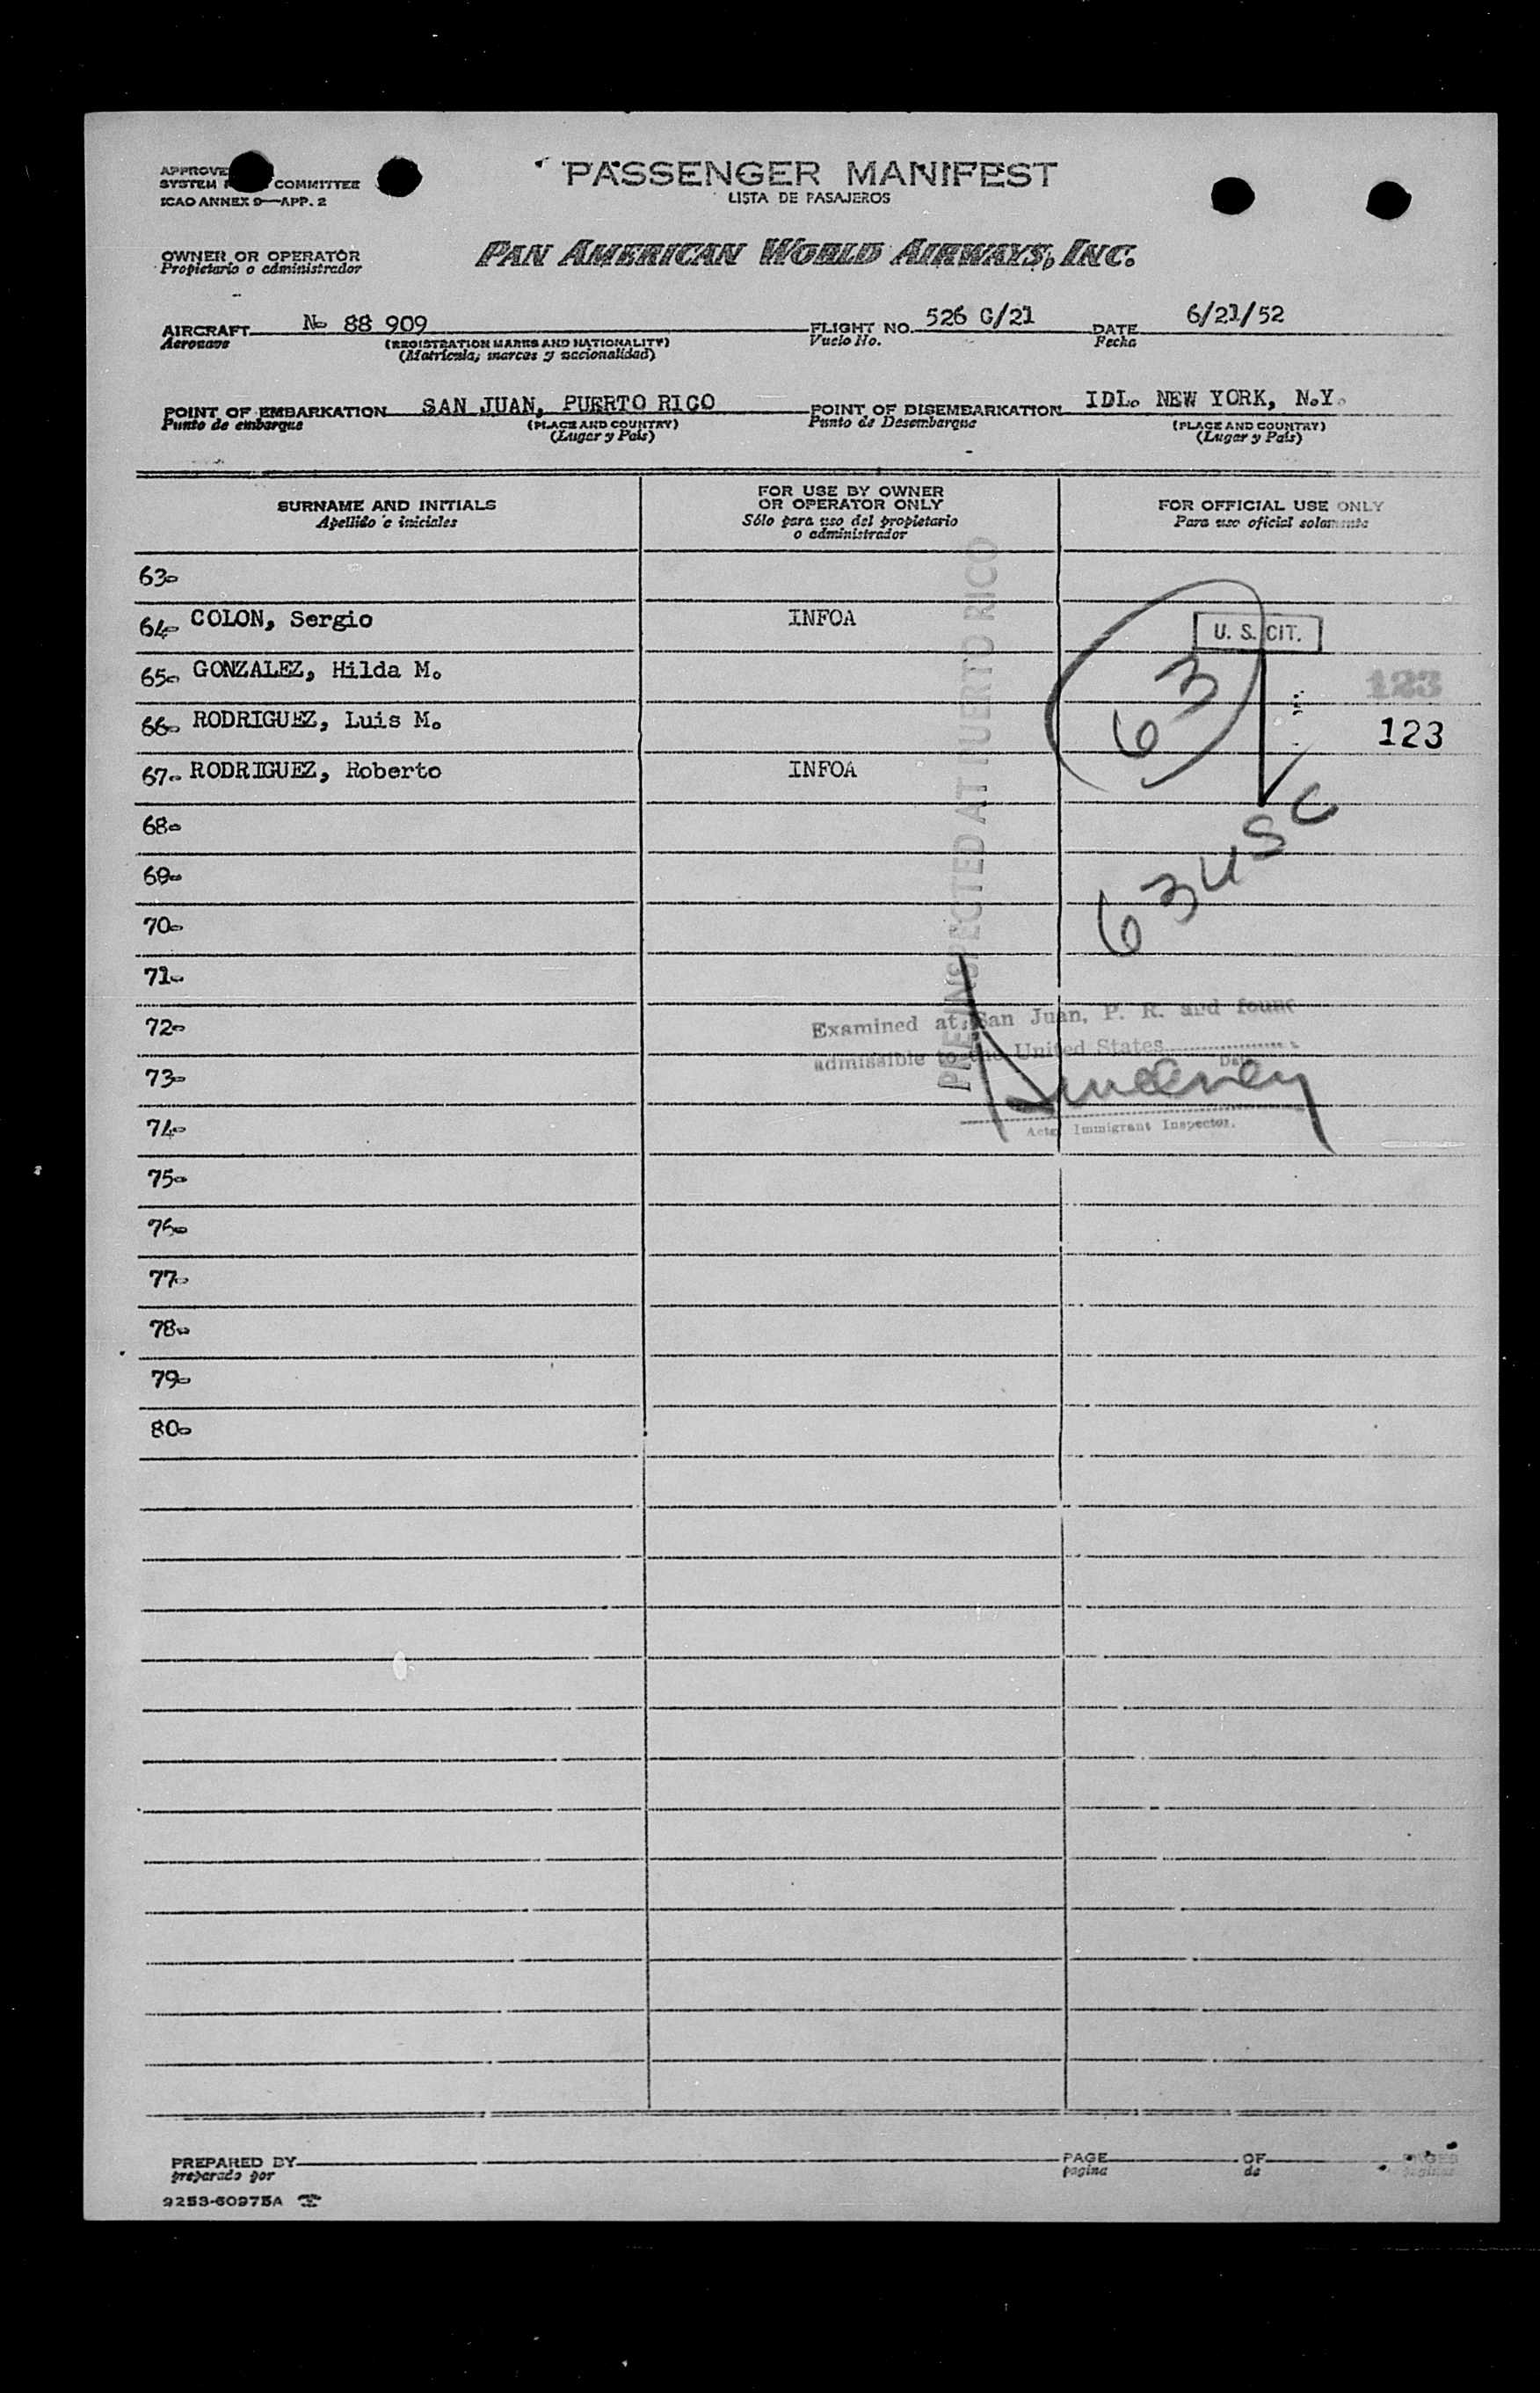 PASSENGER MANIFEST
LISTA DE PASAJEROS
APPROVE
SYSTEM COMMITTEE
ICAO ANNEX 9—APP. 2
OWNER OR OPERATOR
Propietario o administrador
PAN AMERICAN WORLD AIRWAYS, INC.
AIRCRAFT No 88 909 FLIGHT NO. 526 G/21 DATE 6/21/52
Aeronave (REGISTRATION MARKS AND NATIONALITY) Vuelo No. Fecha
(Matrícula, marcas y nacionalidad)
POINT OF EMBARKATION SAN JUAN, PUERTO RICO POINT OF DISEMBARKATION IDL. NEW YORK, N.Y.
Punto de embarque (PLACE AND COUNTRY) Punto de Desembarque (PLACE AND COUNTRY)
(Lugar y País) (Lugar y País)
SURNAME AND INITIALS FOR USE BY OWNER OR OPERATOR ONLY FOR OFFICIAL USE ONLY
Apellido e iniciales Sólo para uso del propietario o administrador Para uso oficial solamente
63-
64- COLON, Sergio INFOA U. S. CIT.
65- GONZALEZ, Hilda M. 123
66- RODRIGUEZ, Luis M. 63 123
67- RODRIGUEZ, Roberto INFOA
68-
69- 63 USC
70-
71-
72-
73-
74-
75-
76-
77-
78-
79-
80-
PREINSPECTED AT PUERTO RICO
Examined at San Juan, P. R. and found
admissible to the United States
Date
Actg. Immigrant Inspector.
PREPARED BY PAGE OF PAGES
preparado por pagina de paginas
9253-60975A